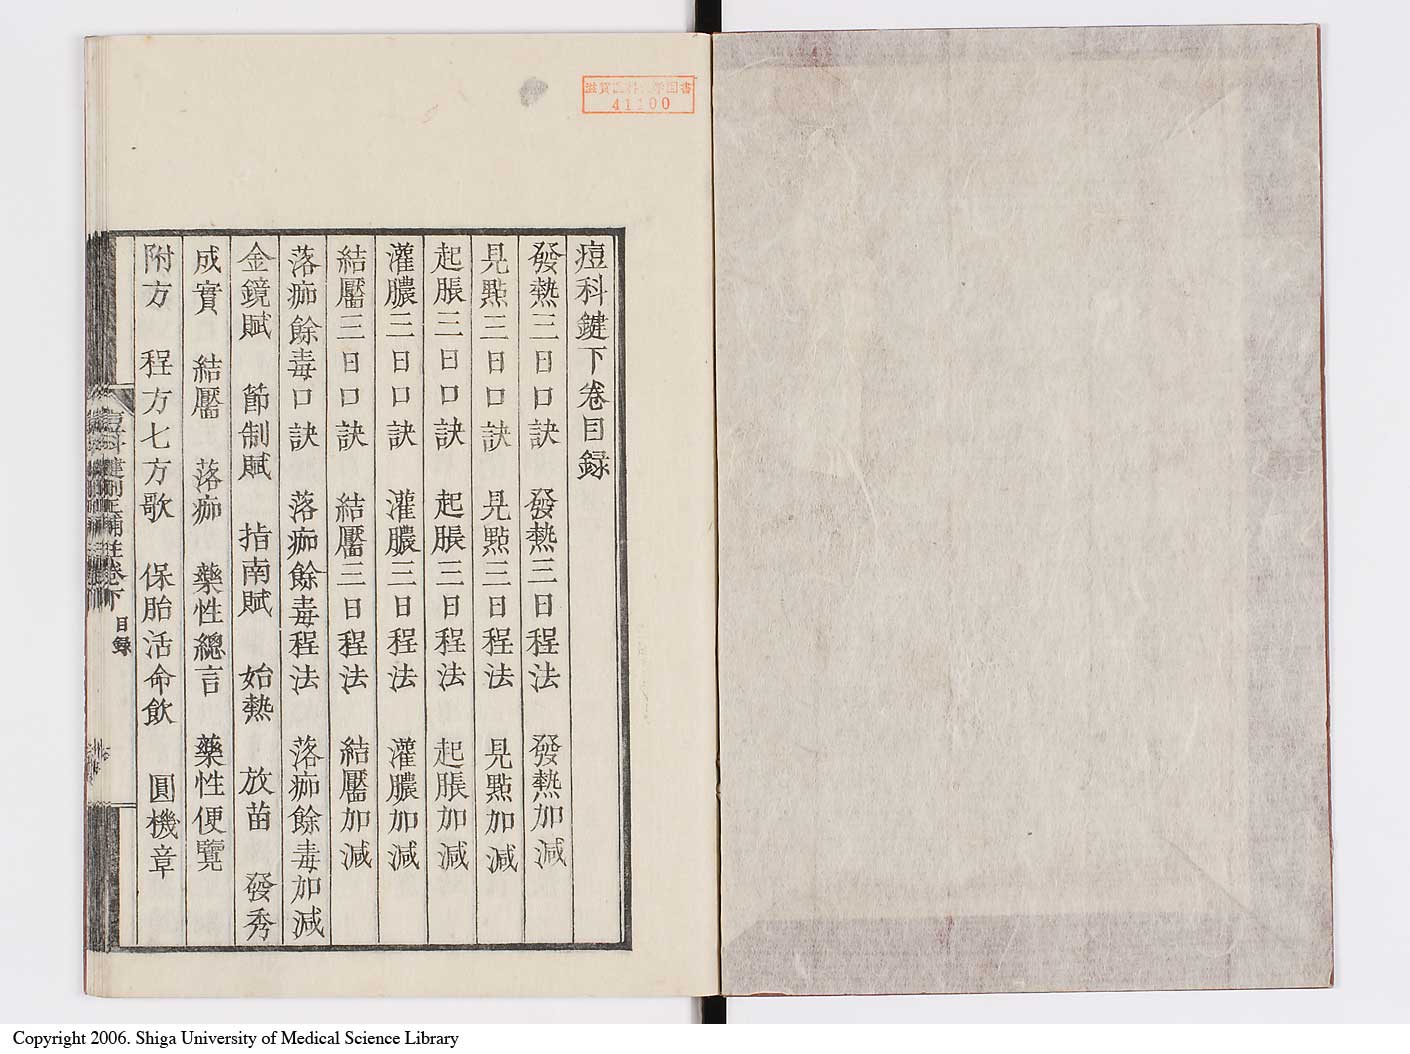 痘科鍵下卷目録
發熱三日口訣 發熱三日程法 發熱加減
見點三日口訣 見點三日程法 見點加減
起脹三日口訣 起脹三日程法 起脹加減
灌膿三日口訣 灌膿三日程法 灌膿加減
結靨三日口訣 結靨三日程法 結靨加減
落痂餘毒口訣 落痂餘毒程法 落痂餘毒加減
金鏡賦 節制賦 指南賦 始熱 放苗 發秀
成實 結靨 落痂 藥性總言 藥性便覽
附方 程方七方歌 保胎活命飲 圓機章
痘科鍵刪正補註卷下 目録
滋賀医科大学図書
41100
Copyright 2006. Shiga University of Medical Science Library